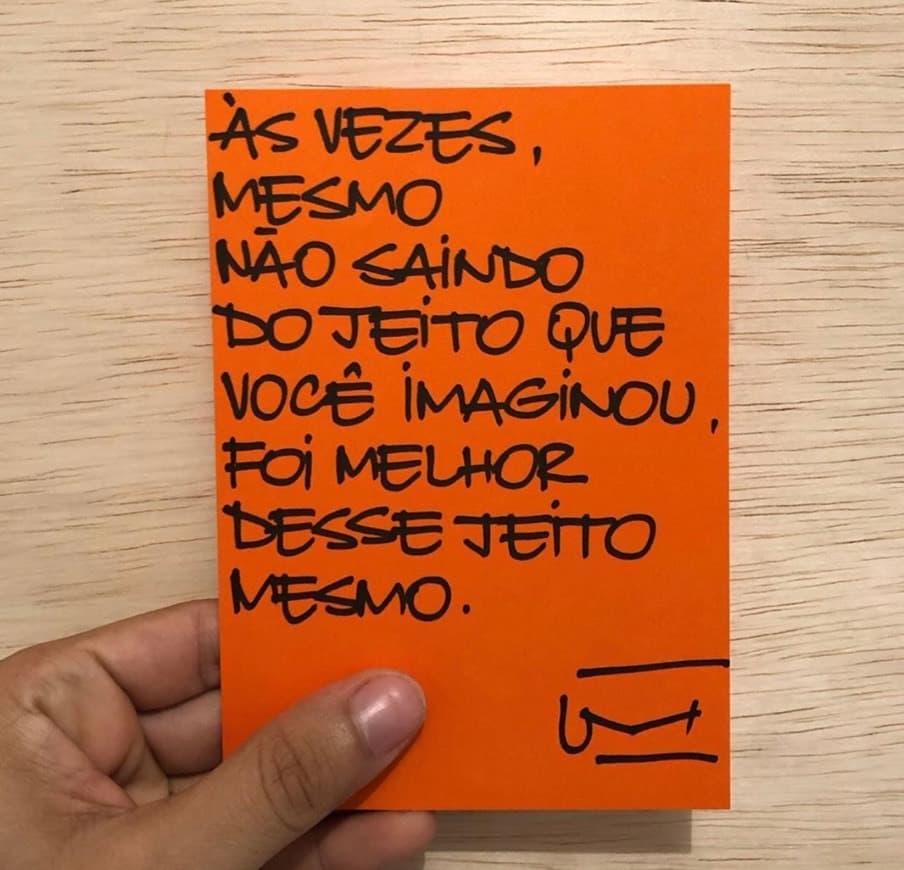 ÀS VEZES,
MESMO
NÃO SAINDO
DO JEITO QUE
VOCÊ IMAGINOU,
FOI MELHOR
DESSE JEITO
MESMO.